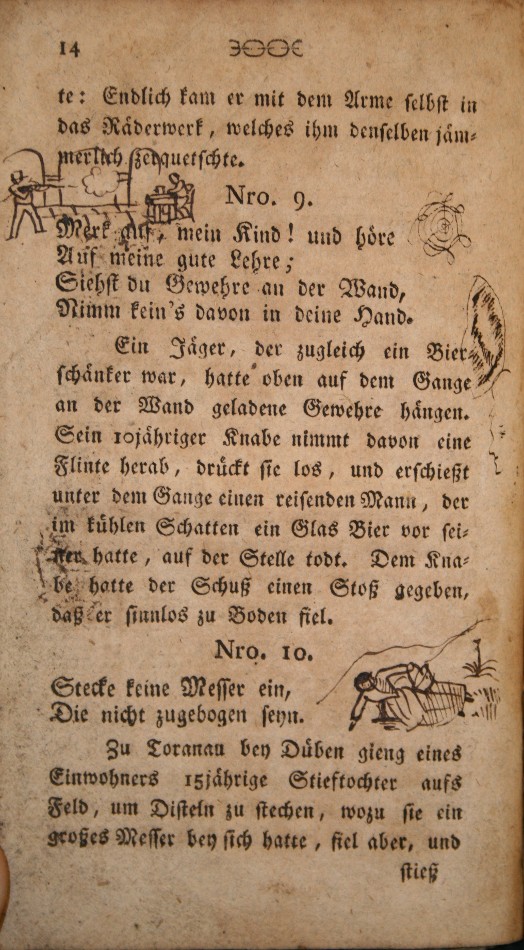 14
te: Endlich kam er mit dem Arme selbst in
das Räderwerk, welches ihm denselben jäm-
merlich zerquetschte.
Nro. 9.
Merk auf, mein Kind! und höre
Auf meine gute Lehre;
Siehst du Gewehre an der Wand,
Nimm kein's davon in deine Hand.
Ein Jäger, der zugleich ein Bier-
schänker war, hatte oben auf dem Gange
an der Wand geladene Gewehre hängen.
Sein 10jähriger Knabe nimmt davon eine
Flinte herab, drückt sie los, und erschießt
unter dem Gange einen reisenden Mann, der
im kühlen Schatten ein Glas Bier vor sei-
ner hatte, auf der Stelle todt. Dem Kna-
be hatte der Schuß einen Stoß gegeben,
daß er sinnlos zu Boden fiel.
Nro. 10.
Stecke keine Messer ein,
Die nicht zugebogen seyn.
Zu Toranau bey Düben gieng eines
Einwohners 15jährige Stieftochter aufs
Feld, um Disteln zu stechen, wozu sie ein
großes Messer bey sich hatte, fiel aber, und
stieß